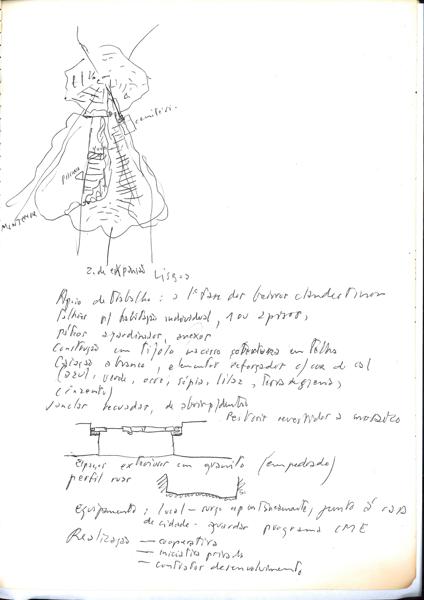 cemitério
Piscina
z. de expansão Lisboa
Apoio de trabalho : a 1ª fase dos bairros clandestinos
p/ habitação individual, 1 ou 2 pisos,
pátios ajardinados, anexos
Construção em tijolo maciço cobertura em telha
Caiação a branco, elementos reforçados c/ cor de cal
(azul, verde, ocre, sépia, lilaz, terra de siena,
cinzento)
janelas recuadas, de abrir p/ dentro
revestido a mosaico
espaços exteriores em granito (empedrado)
perfil ruas
equipamento : local — surge espontaneamente, junto à casa
de cidade - aguardar programa CME
Realização — cooperativa
— iniciativa privada
— contratos desenvolvimento